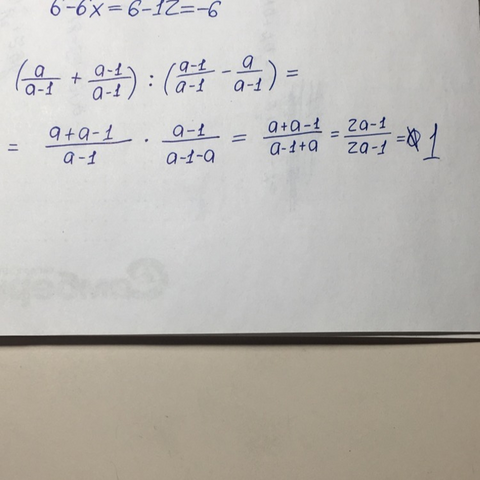 6-6x=6-12=-6
(a/(a-1) + (a-1)/(a-1)) : ((a-1)/(a-1) - a/(a-1)) =
= (a+a-1)/(a-1) · (a-1)/(a-1-a) = (a+a-1)/(a-1+a) = (2a-1)/(2a-1) = 1